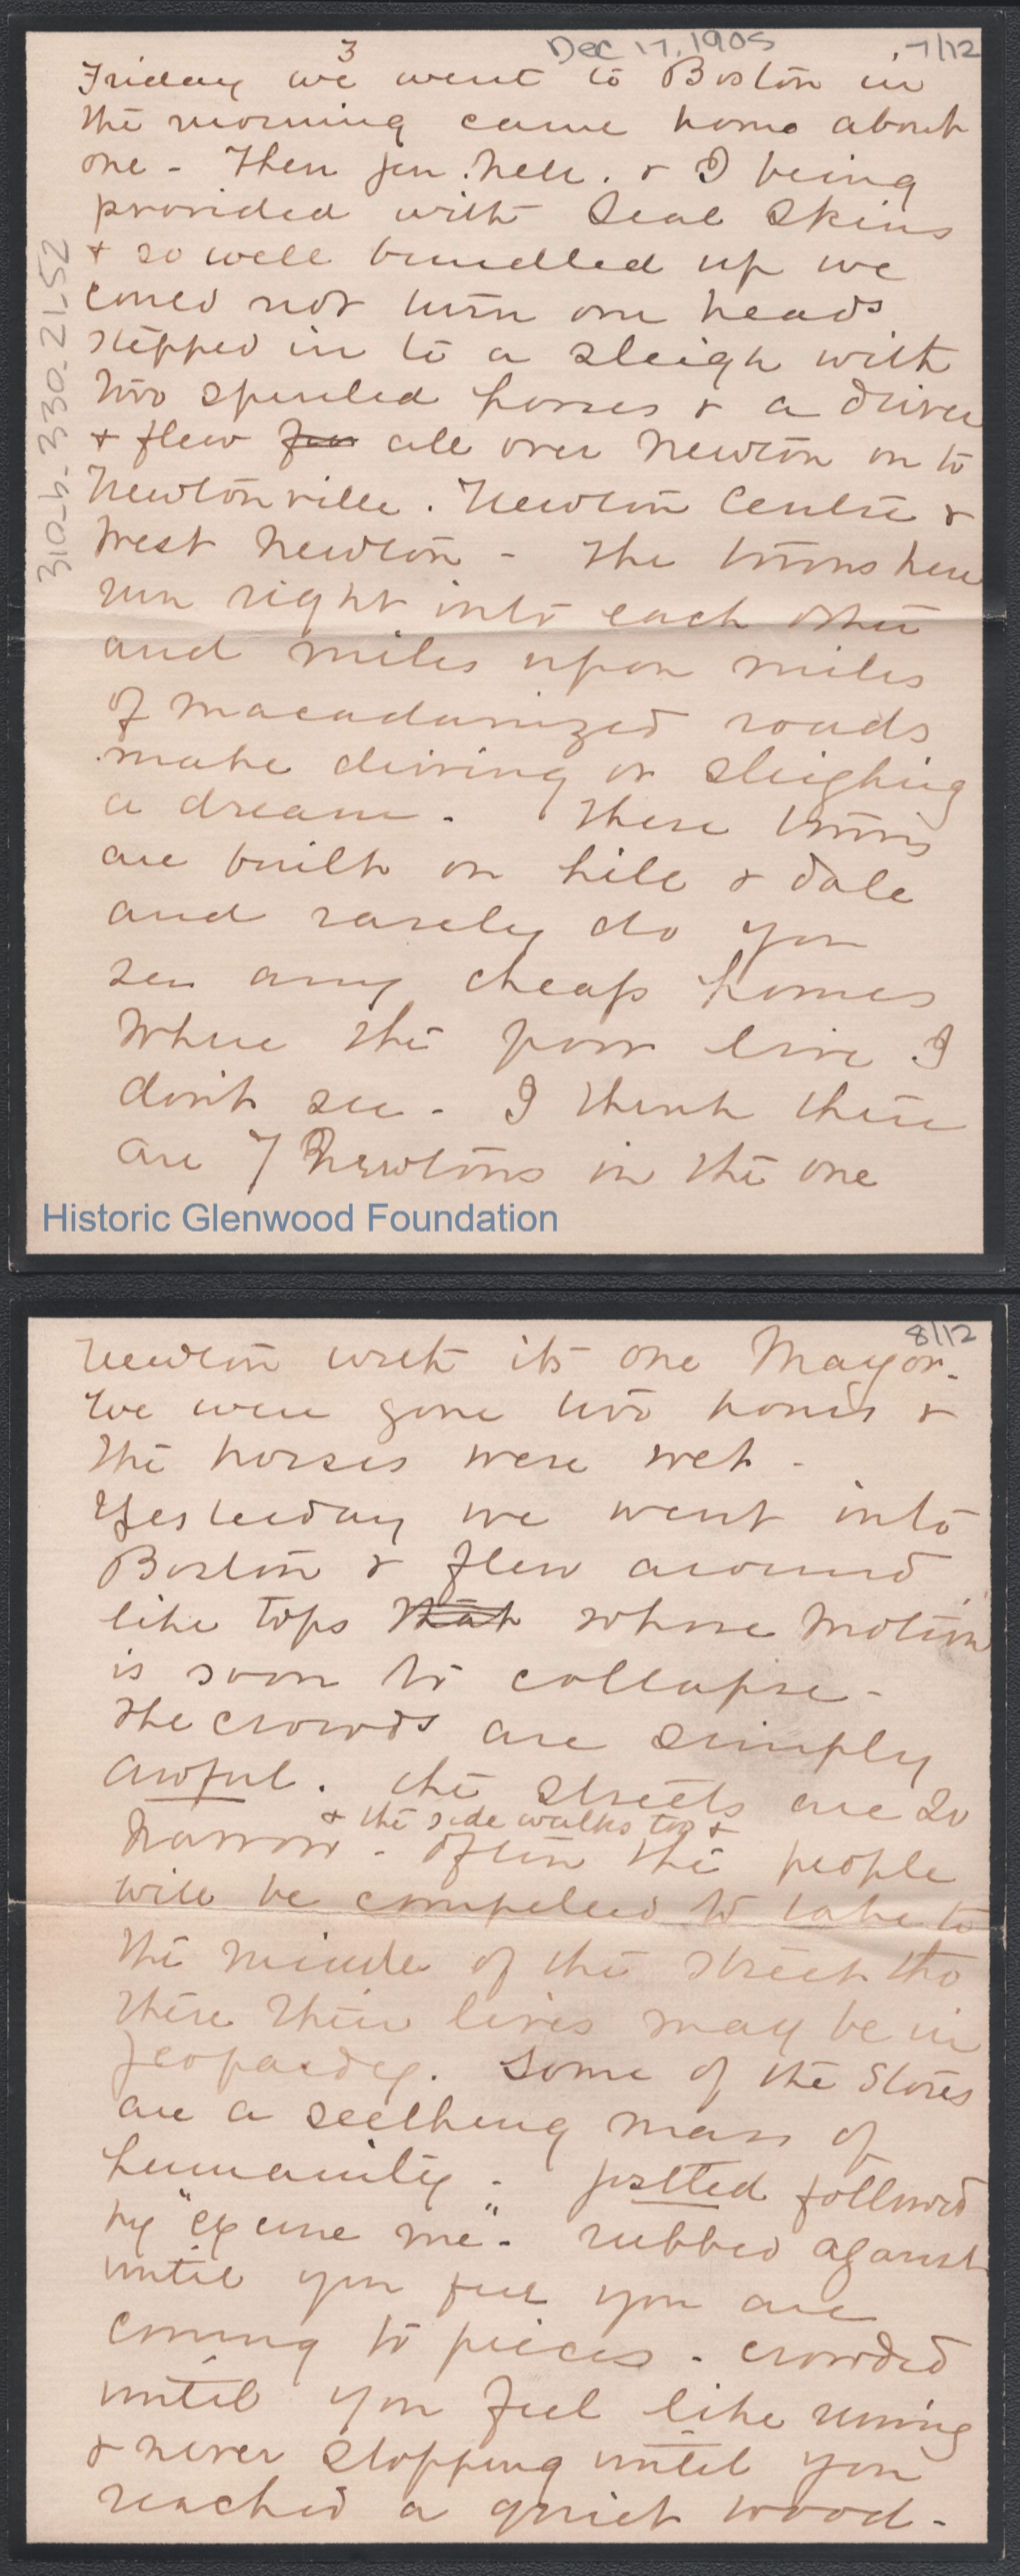 Dec 17, 1905
7/12
3
Friday we went to Boston in
the morning came home about
one - Then Jen. Nell. & I being
provided with Seal Skins
& so well bundled up we
could not turn our heads
stepped in to a sleigh with
two spirited horses & a driver
& flew all over Newton on to
Newtonville. Newton Centre &
West Newton - The towns here
run right into each other
and miles upon miles
of macadamized roads
make driving or sleighing
a dream. These towns
are built on hill & dale
and rarely do you
see any cheap homes
Where the poor live I
don't see - I think there
are 7 Newtons in the one
310_b.330.21.52
Historic Glenwood Foundation
8/12
Newton with its one Mayor.
We were gone two hours &
the horses were wet -
Yesterday we went into
Boston & flew around
like tops that whose motion
is soon to collapse -
The crowds are simply
awful. The streets are so
& the side walks too &
narrow - often the people
will be compelled to take to
the middle of the street tho
there their lives may be in
jeopardy. Some of the stores
are a seething mass of
humanity - jostled followed
by "excuse me". rubbed against
until you feel you are
coming to pieces - crowded
until you feel like runing
& never stopping until you
reached a quiet wood -